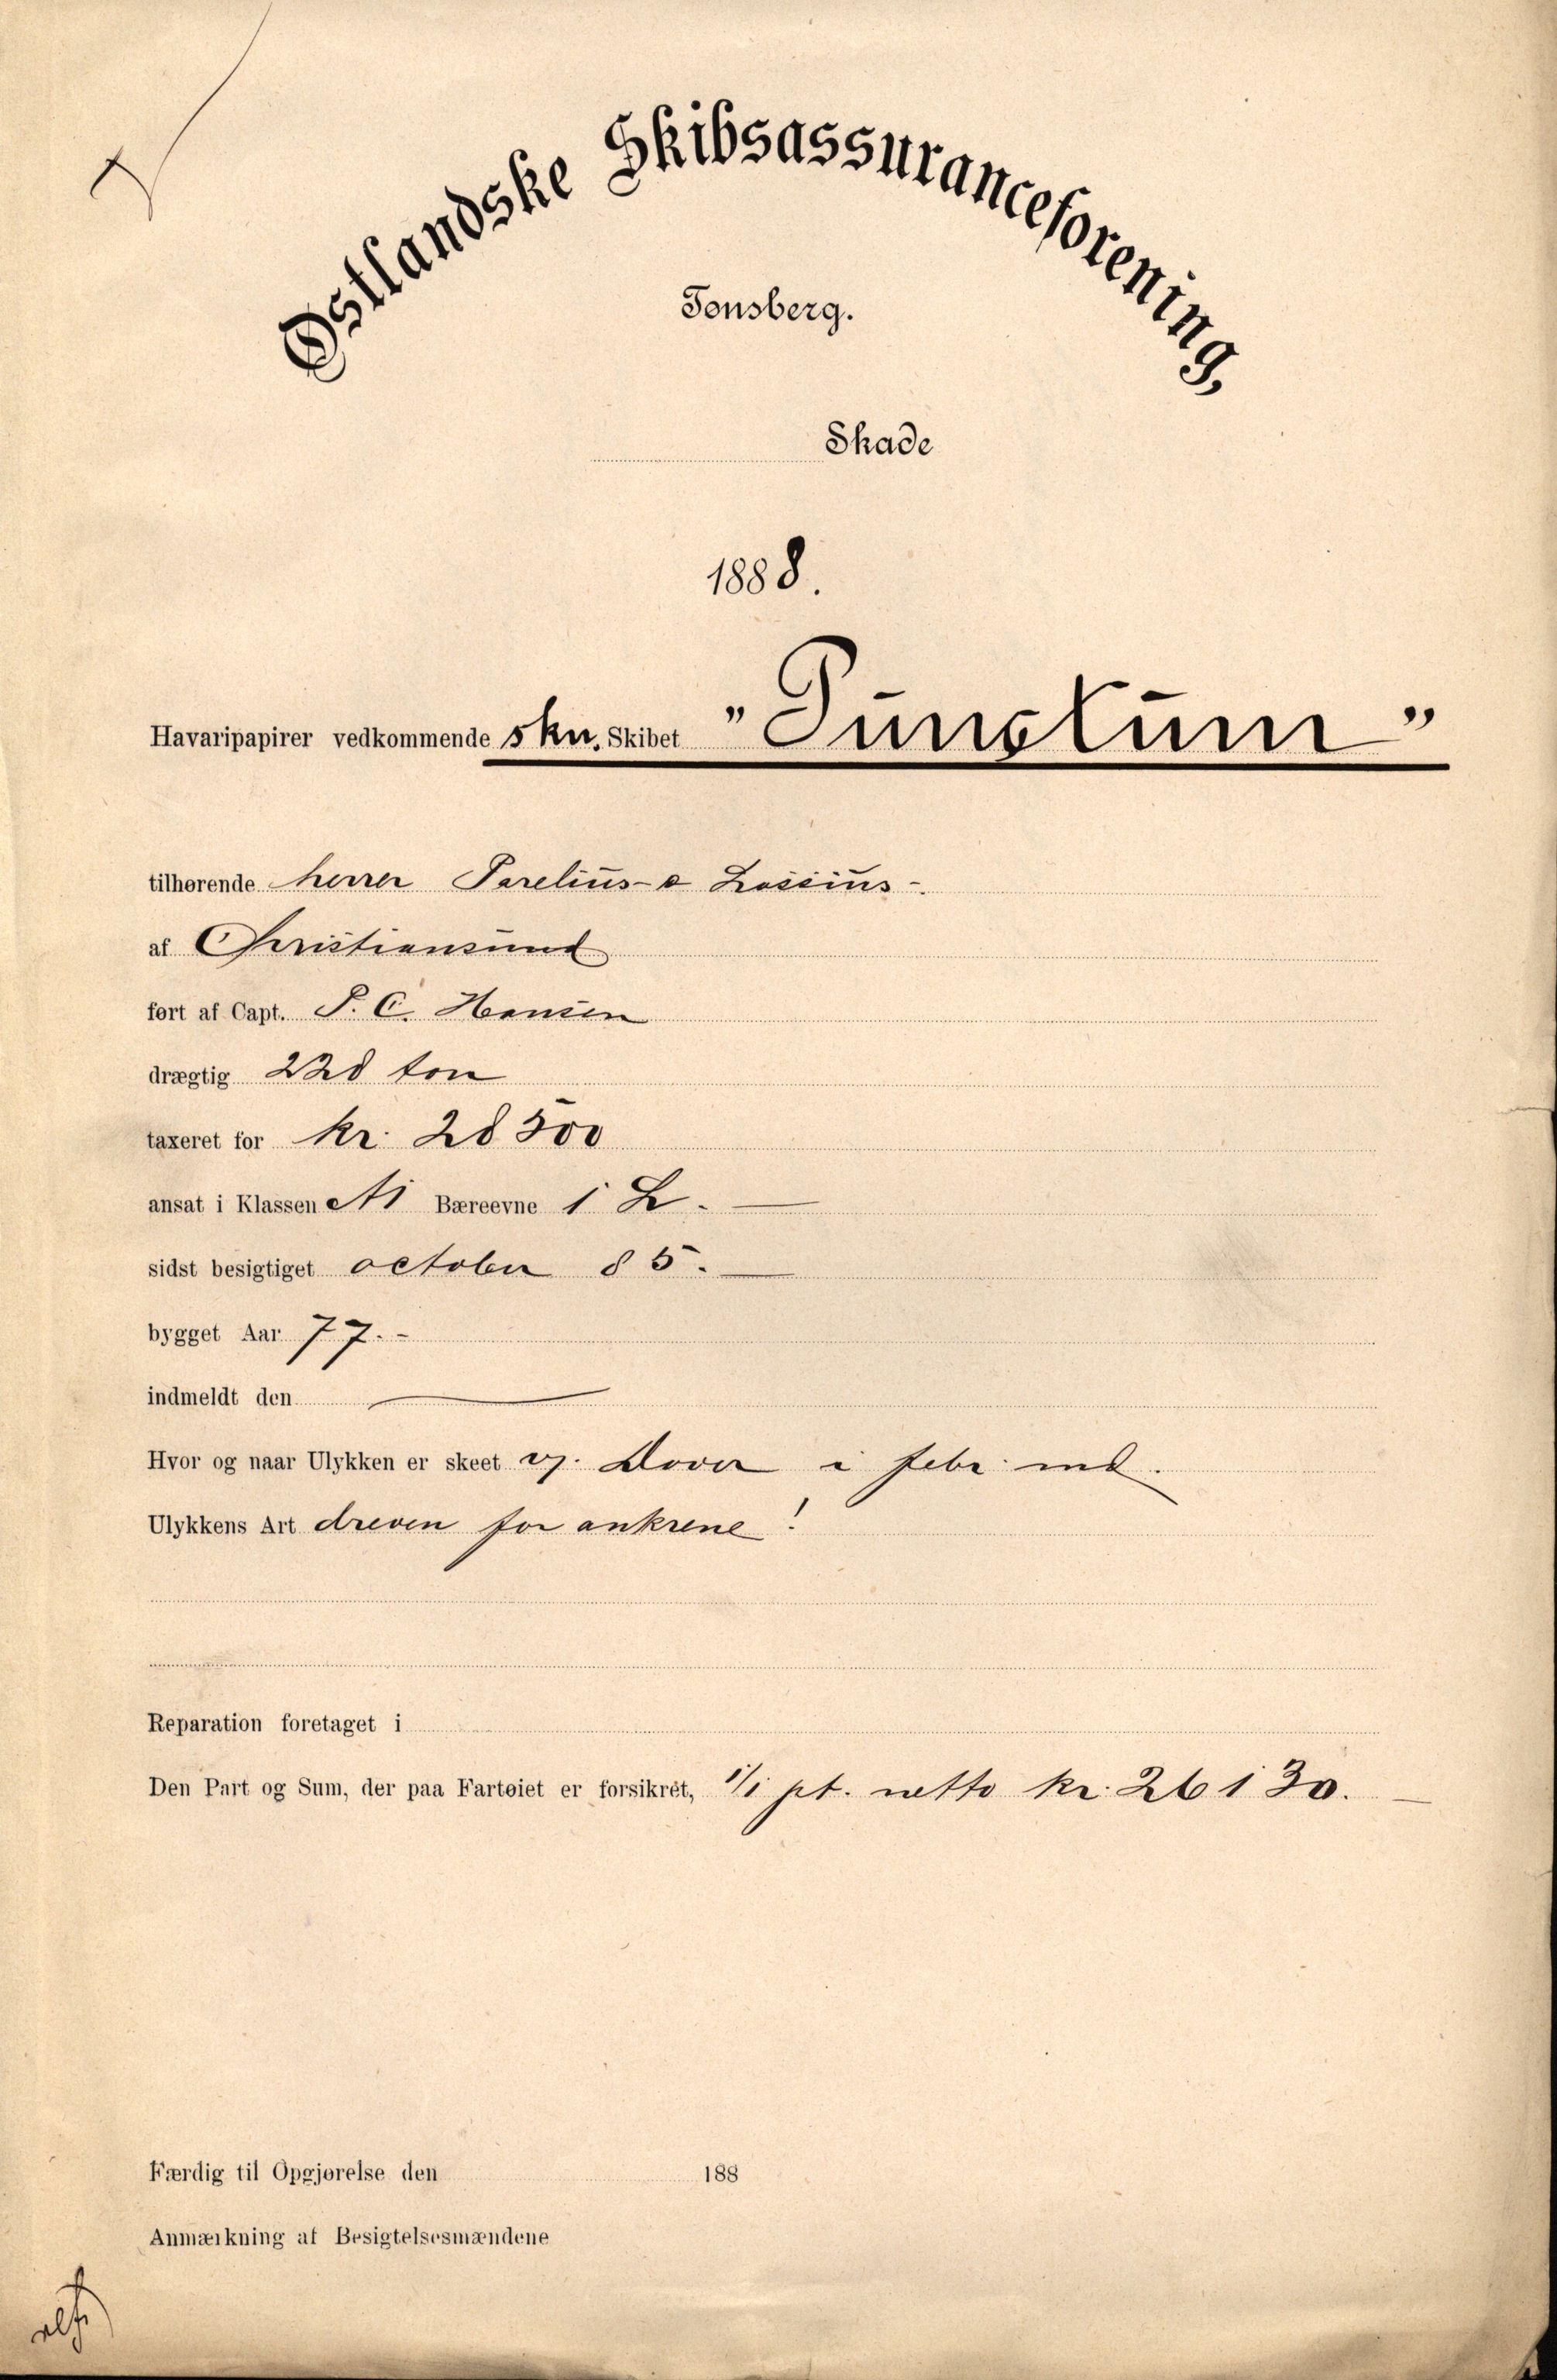 Østlandske Skibsassuranceforening,
Tønsberg.
Skade
1888.
Havaripapirer vedkommende skn. Skibet "Punctum"
tilhørende herrer Parelius & Lossius
af Christiansund
ført af Capt. P. C. Hansen
drægtig 228 ton
taxeret for kr. 28500
ansat i Klassen A1 Bæreevne 1 L.
sidst besigtiget october 85.
bygget Aar 77.
indmeldt den
Hvor og naar Ulykken er skeet v. Dover i febr. md.
Ulykkens Art dreven for ankrene!
Reparation foretaget i
Den Part og Sum, der paa Fartøiet er forsikret, 1/1 pt. netto kr. 26130.
Færdig til Opgjørelse den 188
Anmærkning af Besigtelsesmændene